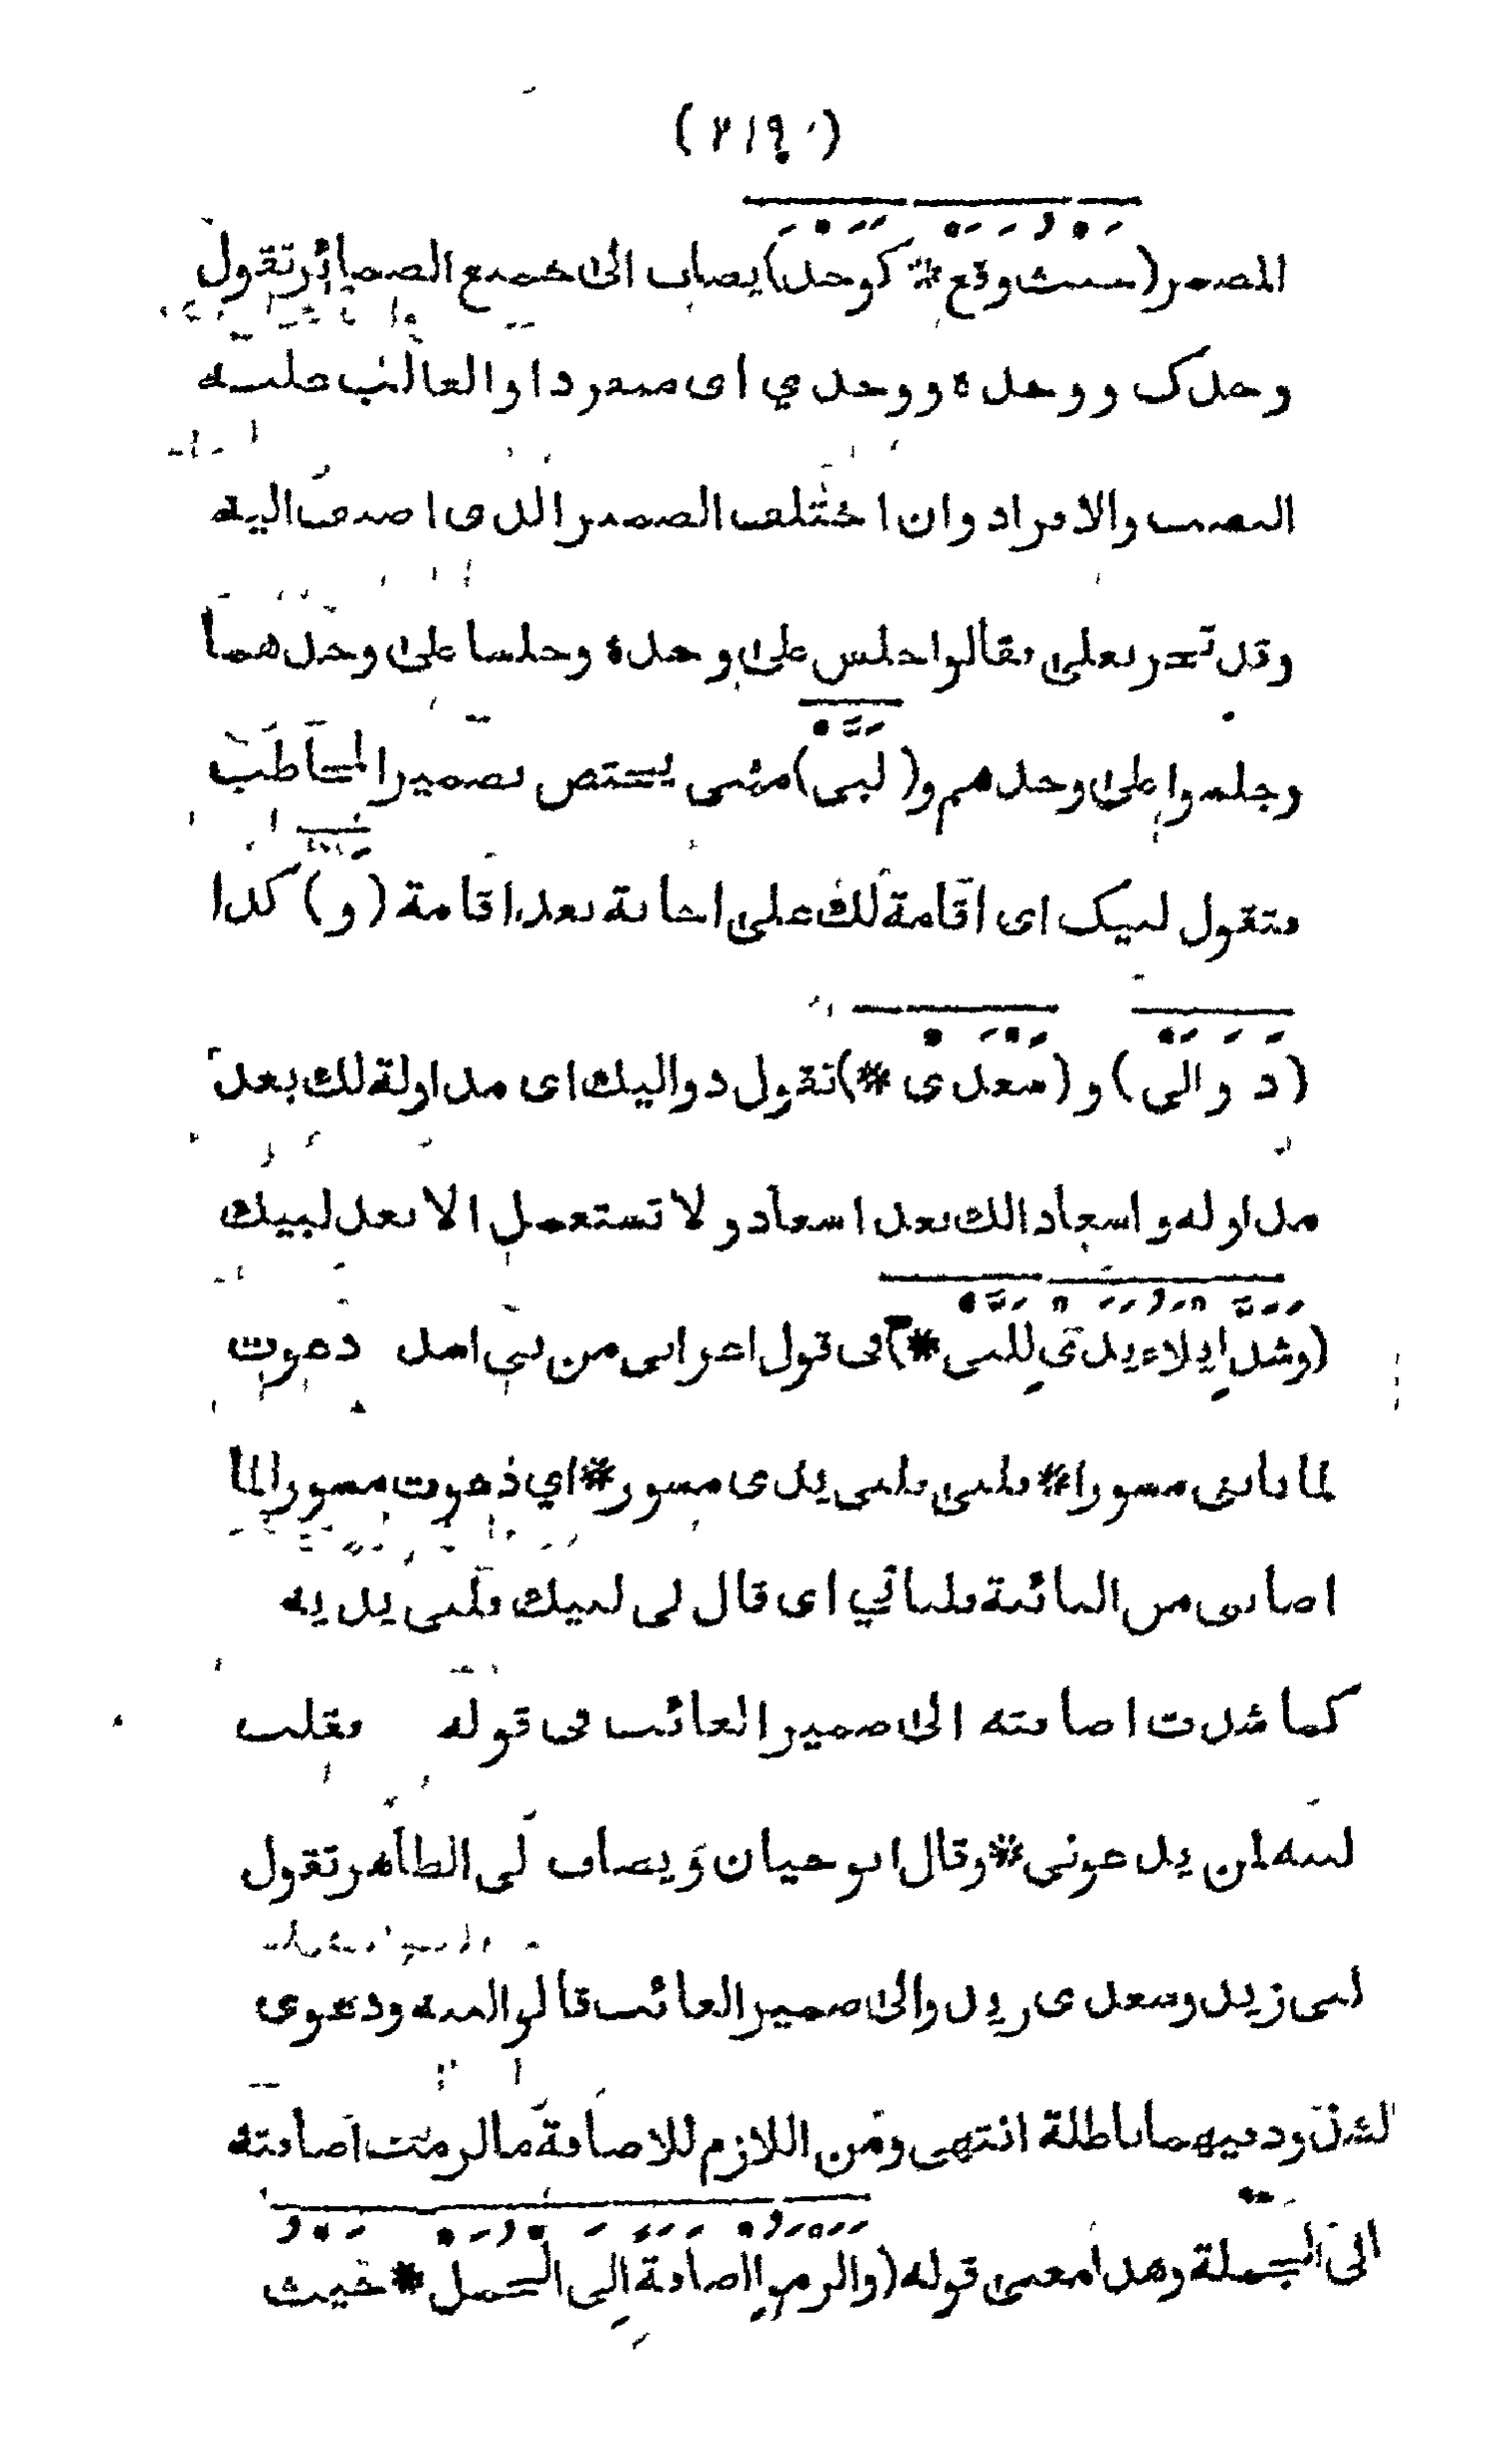 (٢١٩)
المضمر (حيث وقع * كوحد) يضاف الى جميع الضمائر تقول
وحدك ووحده ووحدي اى منفردا والغالب عليه
النصب والافراد وان اختلف الضمير الذى اضيف اليه
وقد تجر بعلى فقالوا جلس على وحده وجلسا على وحدهما
وجلسوا على وحدهم و (لبى) مثنى يختص بضمير المخاطب
فتقول لبيك اى اقامة لك على اجابة بعد اقامة (و) كذا
(دوالى) و (سعدى *) تقول دواليك اى مداولة لك بعد
مداوله واسعادا لك بعد اسعاد ولا تستعمل الا بعد لبيك
(وشذ ايلاء يدَيْ للبى *) فى قول اعرابى من بنى اسد دعوت
لما نابنى مسورا * فلبى فلبى يدى مسور * اي دعوت مسورا لما
اصابنى من النائبة فلباني اى قال لى لبيك فلبى يديه
كما شذت اضافته الى ضمير الغائب فى قوله فقلت
لبيه لمن يدعونى * وقال ابو حيان ويضاف لى الظاهر تقول
لبى زيد وسعدى زيد والى ضمير الغائب قالوا لبيه ودعوى
الشذوذ فيهما باطلة انتهى ومن اللازم للاضافة ما لزمت اضافته
الى الجملة وهذا معنى قوله (والزموا اضافة الى الجمل * حيث